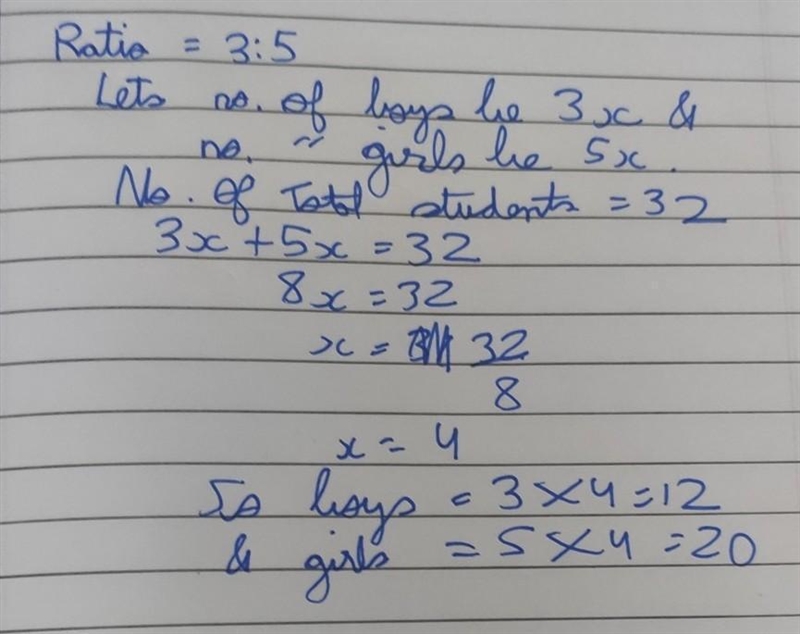 Ratio = 3:5
Lets no. of boys be 3x &
no. " girls be 5x.
No. Of Total students = 32
3x + 5x = 32
8x = 32
x = 32
8
x = 4
So boys = 3 × 4 = 12
& girls = 5 × 4 = 20